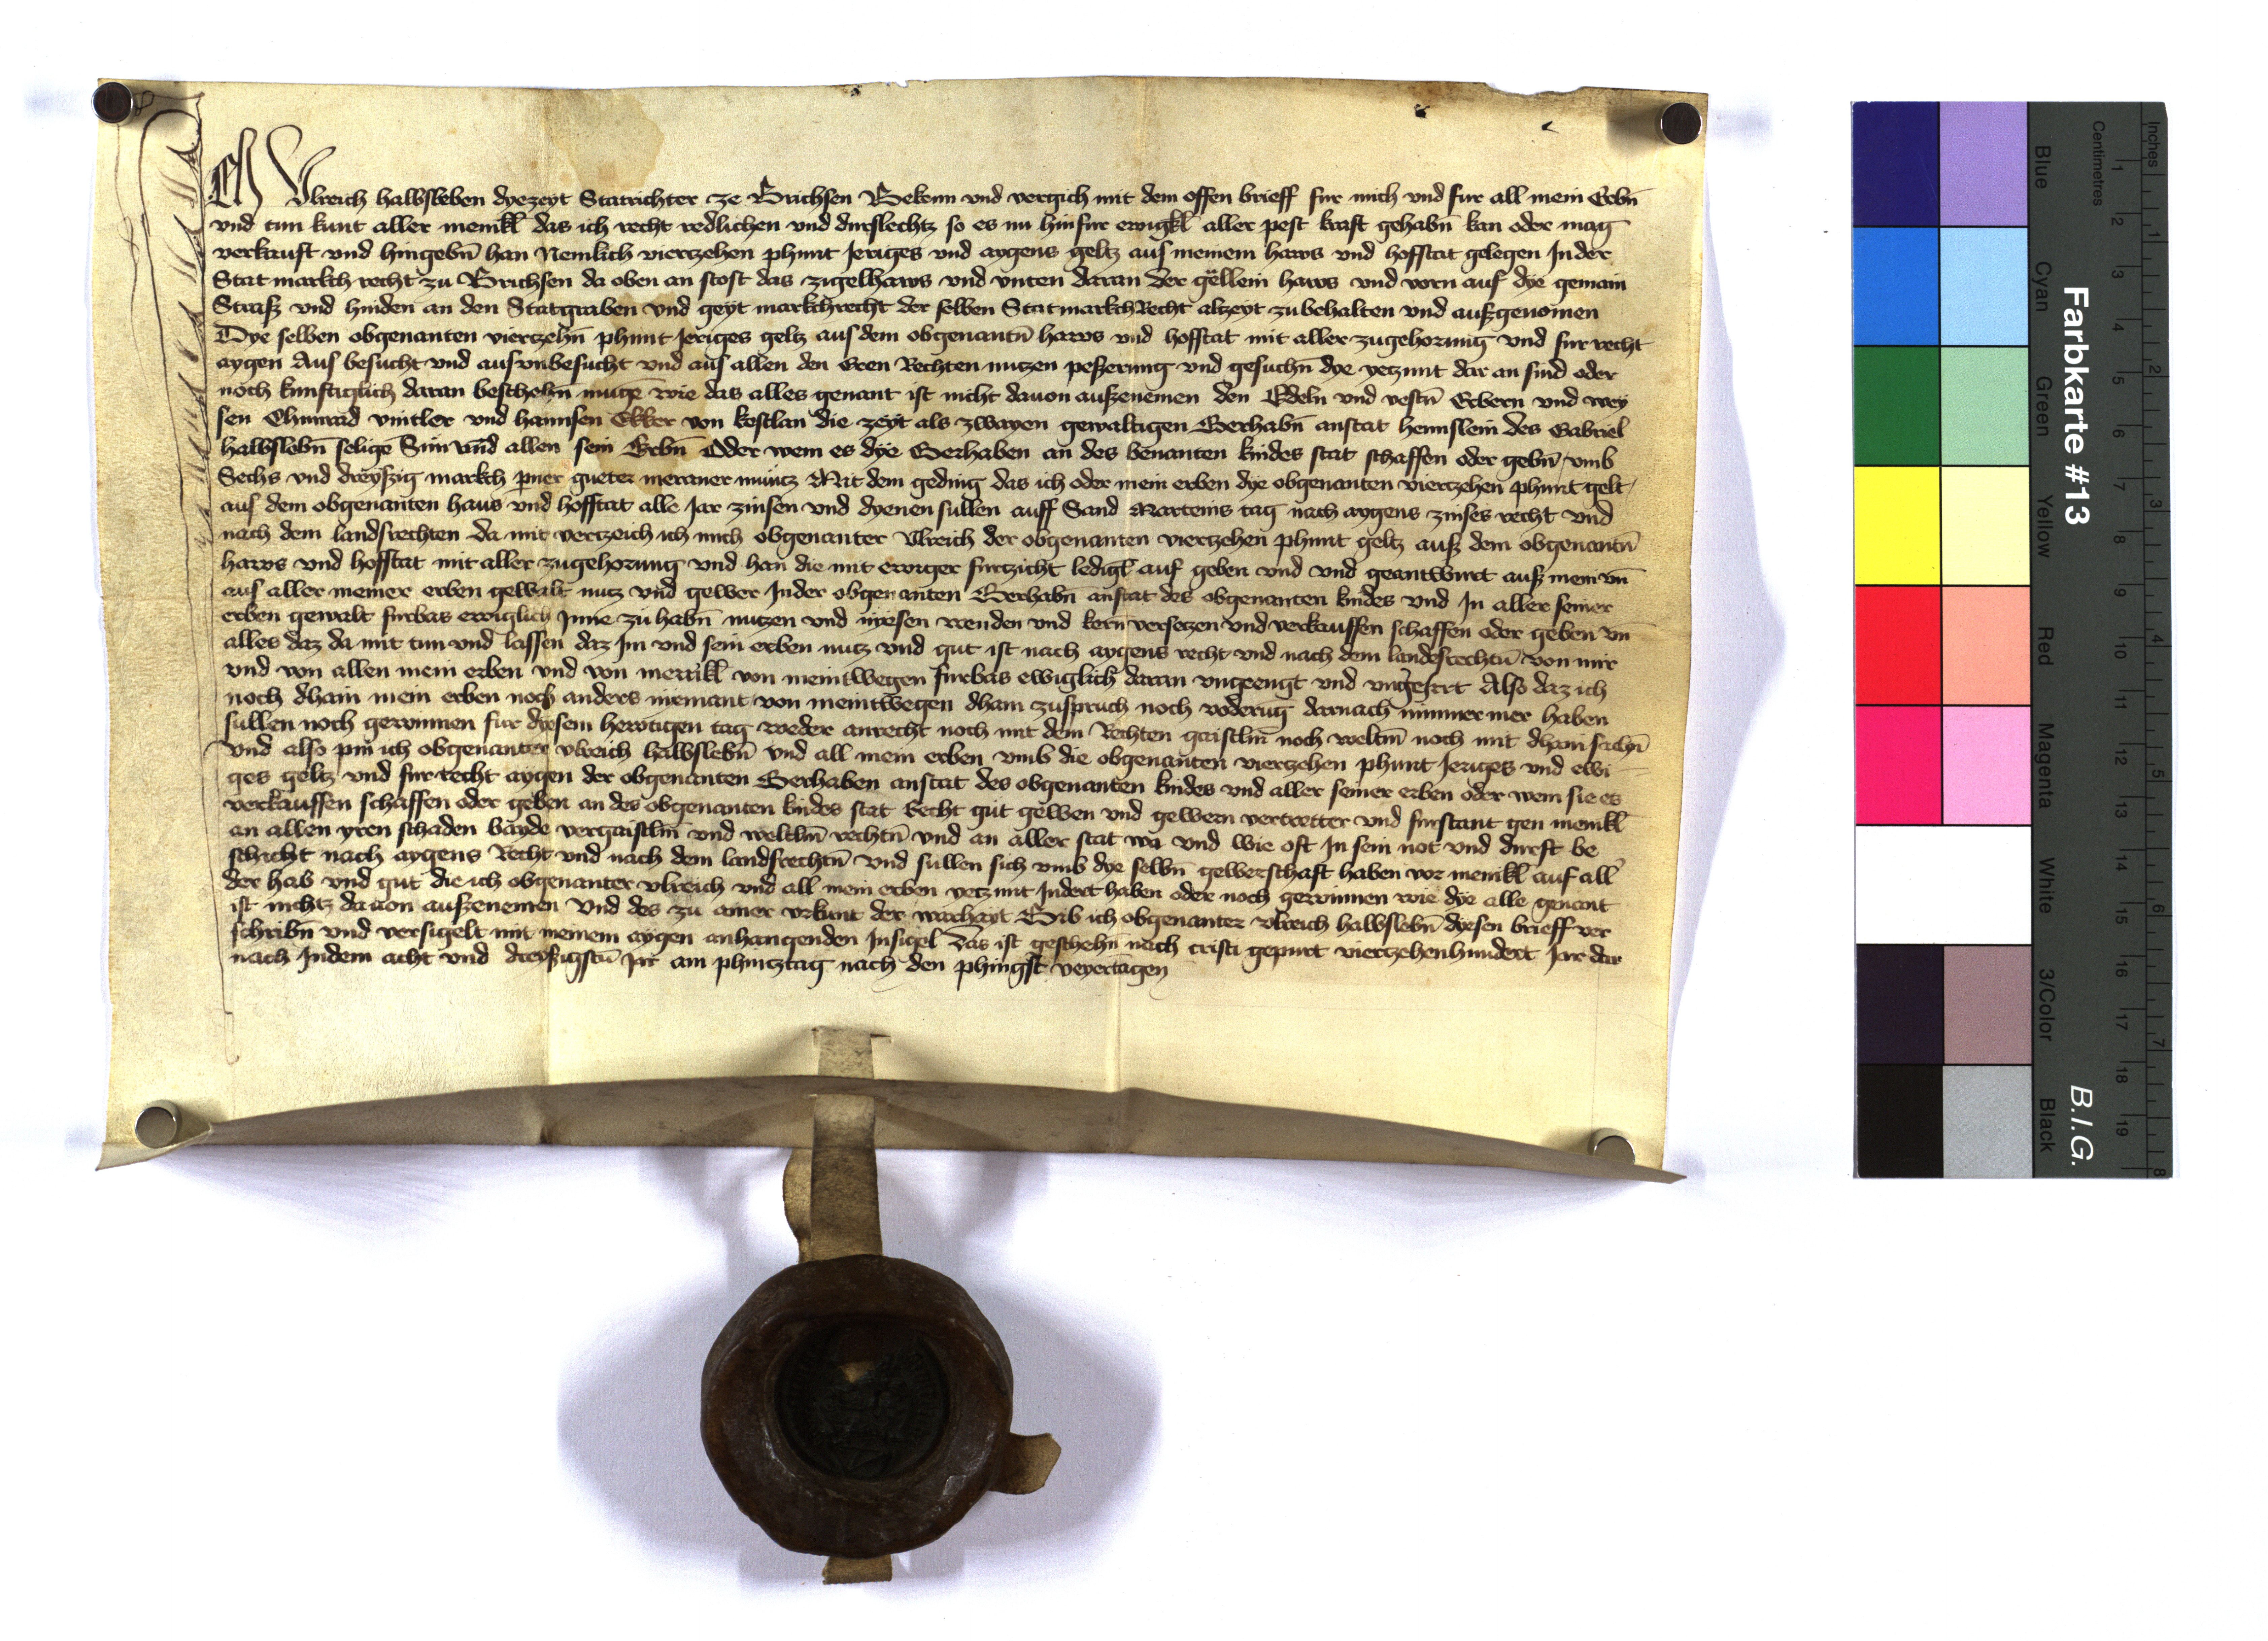 Ich Vlreich halbsleben dyezeyt Statrichter ze Brichsen Bekenn vnd vergich mit dem offen brieff fur mich vnd fur all mein Erbn̄
vnd tun kunt aller menikl̄ das ich recht redlichen vnd durslechtz so es nu hinfur ewigkl̄ aller pest kraft gehabn̄ kan oder mag
verkauft vnd hingebn̄ han Nemlich vierzehen phunt Jeriges vnd aygens geltz aus meinem haws vnd hofstat gelegen In der
Stat markch recht zu Brichsen da oben an stost das zigelhaws vnd vnten daran der gëllein haws vnd vorn auf dye gemain
Strass vnd hinden an den Statgraben vnd geyt markchrecht der selben Stat markch Recht alzeyt zubehalten vnd ausgenomen
Dye selben obgenanten vierczehn̄ phunt Jeriges geltz aus dem obgenantn̄ haws vnd hofstat mit aller zugehorung vnd fur recht
aygen Aus besucht vnd aus vnbesucht vnd aus allen den Eren Rechten nutzen pesserung vnd gesuchn̄ dye yetzunt dar an sind oder
noch kunftiglich daran beschehn̄ muge wie das alles genant ist nicht dauon auszenemen den Edeln vnd vestn̄ Erbern vnd wey
sen Chunrad vintler vnd hannsen Ekker von kestlan die zeyt als zwayen gewaltigen Gerhabn̄ anstat hennslein des Gabriel
halbslebn̄ selige Sun vnd allen sein Erbn̄ Oder wem es dye Gerhaben an des benanten kindes stat schaffen oder gebn̄ vmb
Sechs vnd dreyszig markch pner gueter meraner muncz Mit dem geding das ich oder mein erben dye obgenanten vierczehen phunt gelt
aus dem obgenanten haus vnd hofstat alle Jar zinsen vnd dyenen sullen auff Sand Marteins tag nach aygens zinses recht vnd
nach dem landsrechten da mit verczeich ich mich obgenanter Vlreich der obgenanten vierczehen phunt geltz aus dem obgenantn̄
haws vnd hofstat mit aller zugehorung vnd han die mit ewiger furzicht ledigl̄ auf geben vnd vnd geantwurt aus mein vn̄
aus aller meiner erben gewalt nutz vnd gewer In der obgenanten Gerhabn̄ anstat des obgenanten kindes vnd In aller seiner
erben gewalt furbas ewiglich Inne zu habn̄ nutzen vnd niesen wenden vnd kern versetzen vnd verkauffen schaffen oder geben vn̄
alles daz da mit tun vnd lassen daz Im vnd sein erben nutz vnd gut ist nach aygens recht vnd nach dem landesrechtn̄ von mir
vnd von allen mein erben vnd von menikl̄ von meintwegen furbas ewiglich daran vngeengt vnd vngeirrt Also daz ich
noch dhain mein erben noch anders niemant von meintwegen dhain zuspruch noch voderūg darnach nimmer mer haben
sullen noch gewinnen fur dysem hewtigen tag weder anrecht noch mit dem Rechten gaistlm̄ noch weltm̄ noch mit dhain sachn̄
Vnd also pin ich obgenanter vlreich halbslebn̄ vnd all mein erben vmb die obgenanten vierzehen phunt Jeriges vnd ewi
ges geltz vnd fur recht aygen der obgenanten Gerhaben anstat des obgenanten kindes vnd aller seiner erben oder wem sie es
verkauffen schaffen oder geben an des obgenanten kindes stat Recht gut gewen vnd gewern vertretter vnd furstant gen menikl̄
an allen yren schaden bayde vor gaistlm̄ vnd weltlm̄ rechtn̄ vnd an aller stat wa vnd wie oft In sein not vnd durft be
schicht nach aygens Recht vnd nach dem landsrechtn̄ vnd sullen sich vmb dye selbn̄ gewerschaft haben vor menikl̄ auf all
der hab vnd gut die ich obgenanter vlreich vnd all mein erben yetzunt Indert haben oder noch gewinnen wie dye alle genant
ist nichtz dauon auszenemen Vnd des zu ainer vrkunt der warhayt Gib ich obgenanter vlreich halbslebn̄ dysen brieff ver
schribn̄ vnd versigelt mit meinem aygen anhangenden Insigel Das ist geschehn̄ nach cristi gepurt vierzehenhundert Jar dar
nach Indem acht vnd dreyszigstn̄ Jar am phincztag nach den phingst veyertagen
Farbkarte #13
B.I.G.
Inches 1 2 3 4 5 6 7 8
Centimetres 1 2 3 4 5 6 7 8 9 10 11 12 13 14 15 16 17 18 19
Blue
Cyan
Green
Yellow
Red
Magenta
White
3/Color
Black